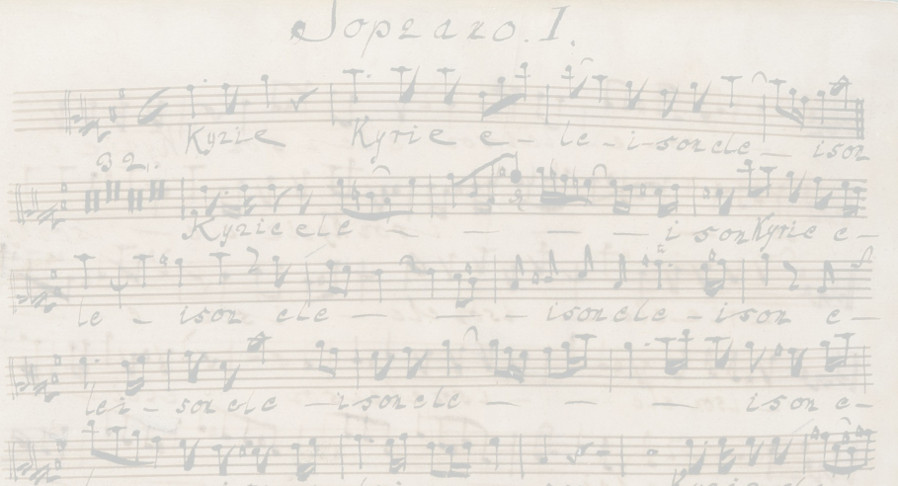 Soprano. I.
Kyrie Kyrie e - le - i - son ele - ison
32.
Kyrie ele - - - - i son Kyrie e -
le - ison ele - - - ison ele - ison e -
lei - son ele - ison ele - - - - ison e -